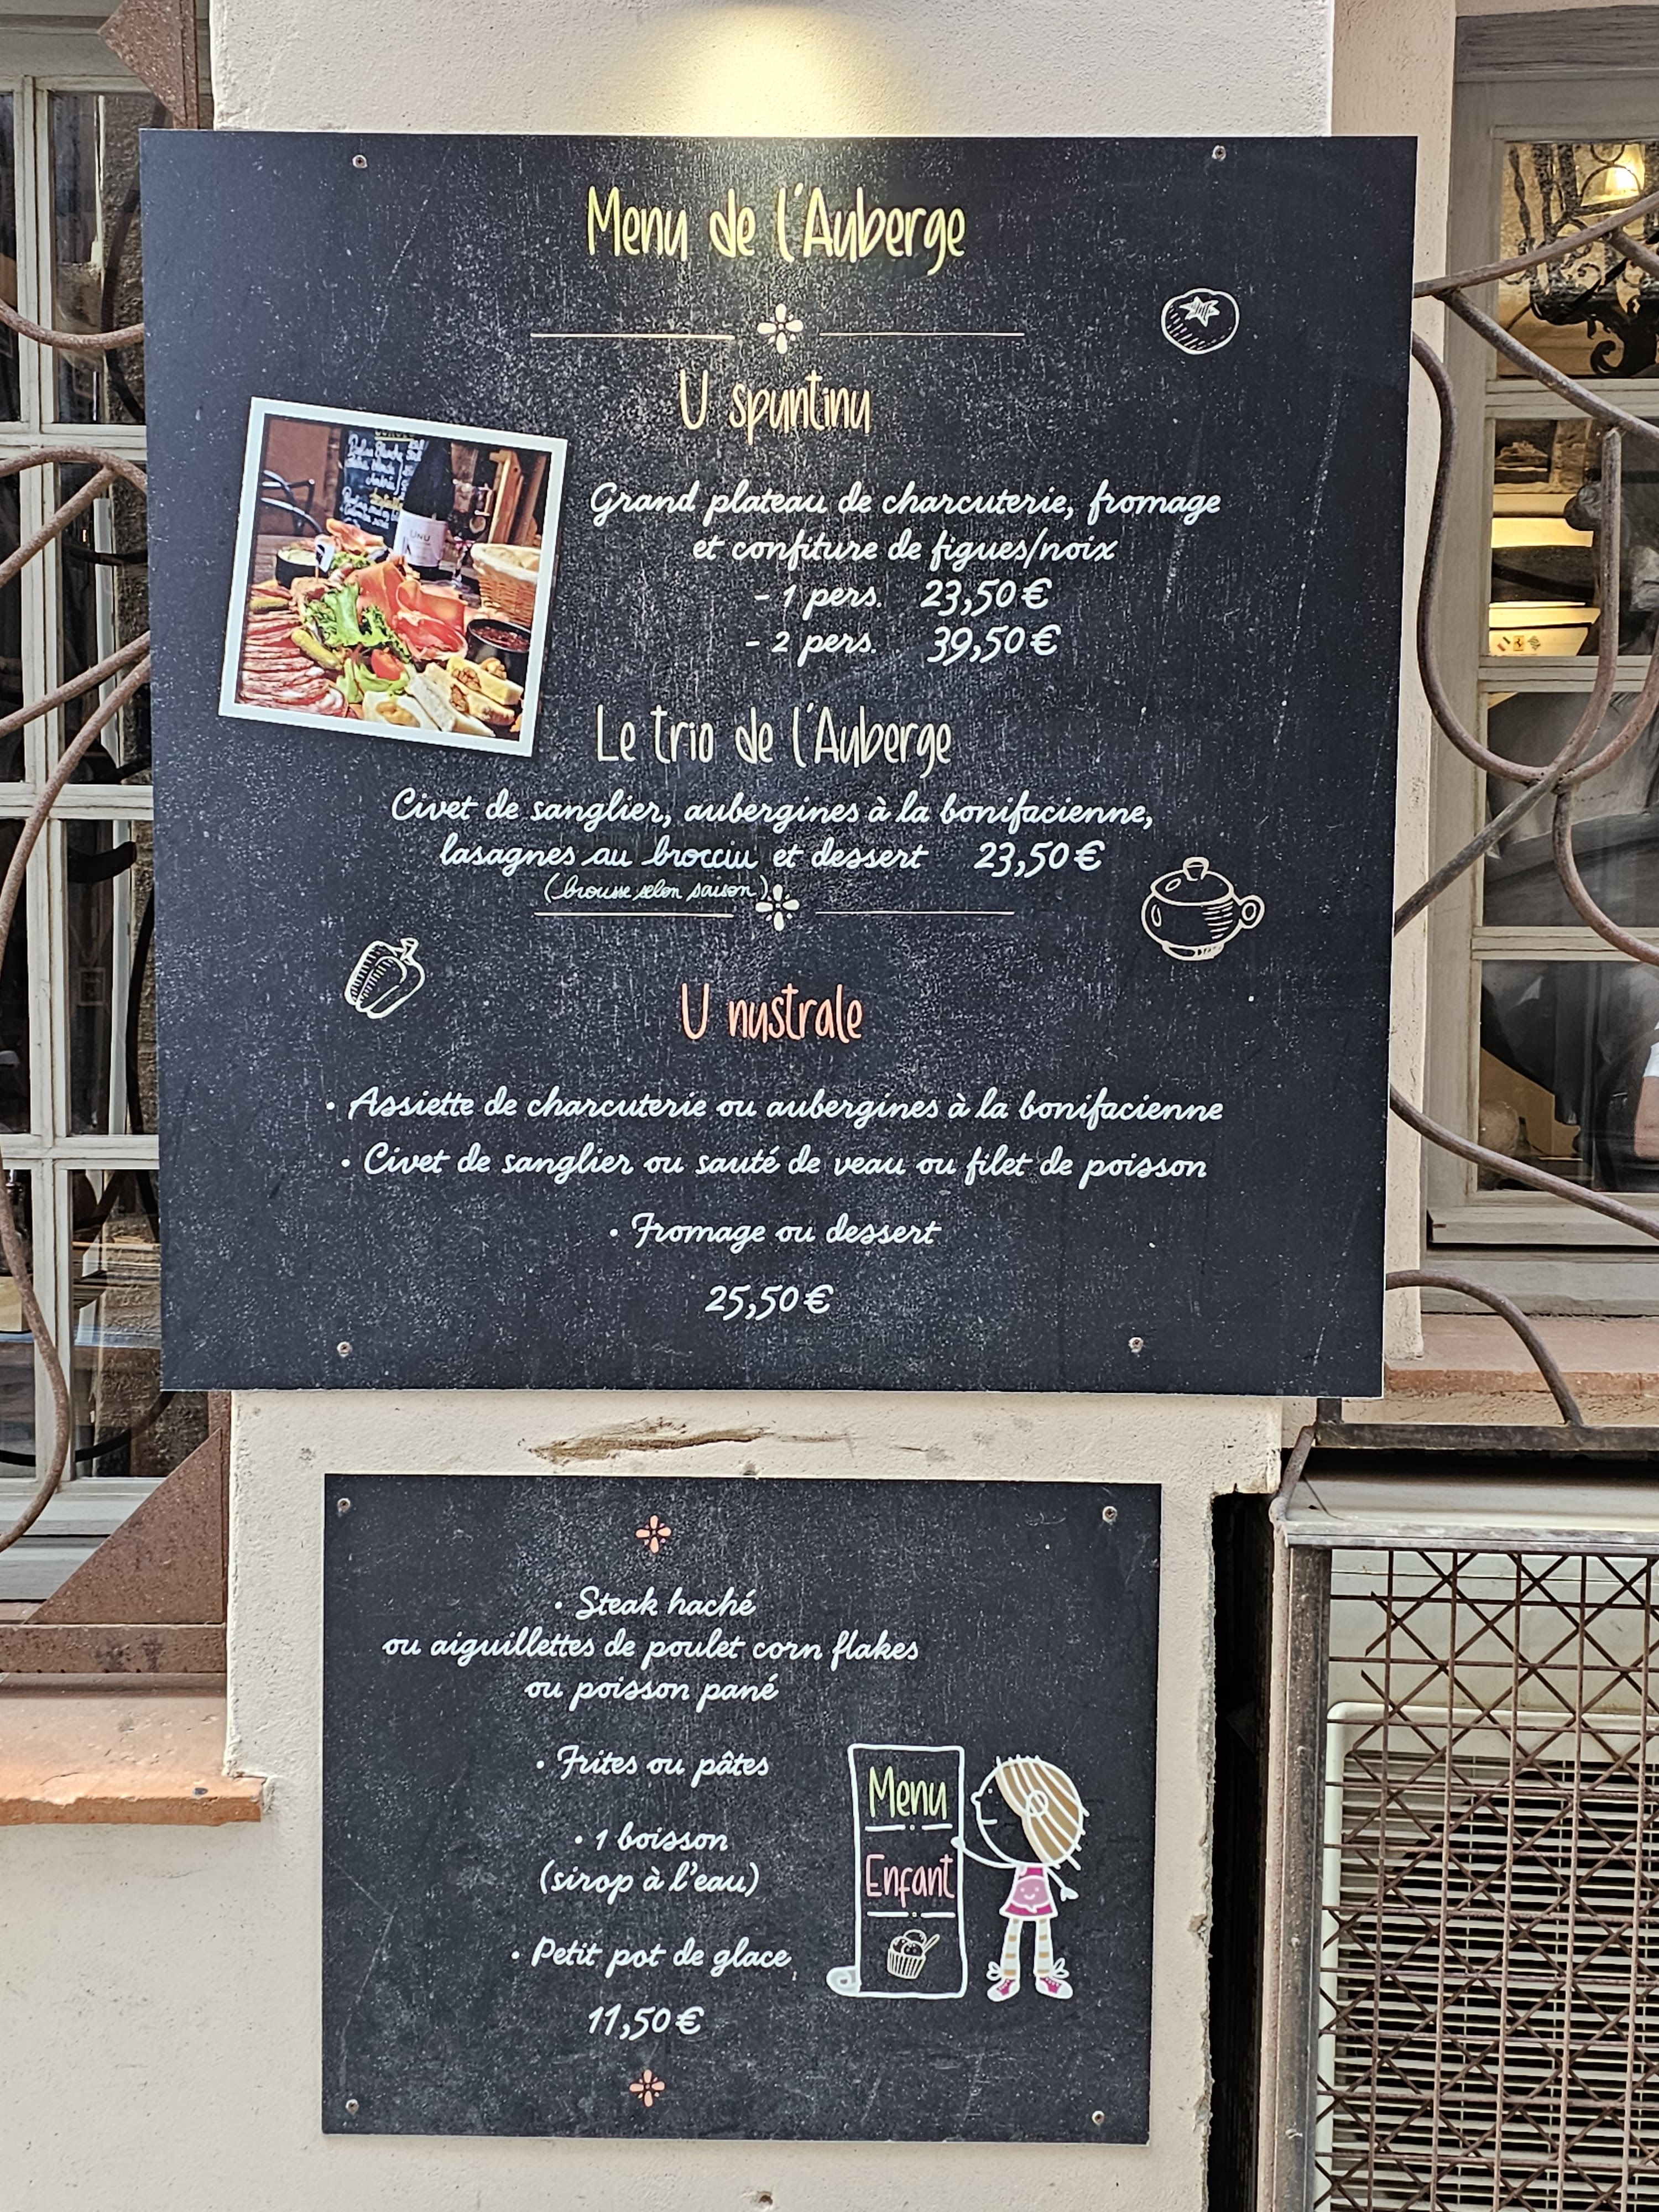 Menu de l'Auberge
U spuntinu
Grand plateau de charcuterie, fromage
et confiture de figues/noix
- 1 pers. 23,50€
- 2 pers. 39,50€
UNU
Le trio de l'Auberge
Civet de sanglier, aubergines à la bonifacienne,
lasagnes au brocciu et dessert 23,50€
(brousse selon saison)
U nustrale
• Assiette de charcuterie ou aubergines à la bonifacienne
• Civet de sanglier ou sauté de veau ou filet de poisson
• Fromage ou dessert
25,50€
• Steak haché
ou aiguillettes de poulet corn flakes
ou poisson pané
• Frites ou pâtes
• 1 boisson
(sirop à l'eau)
• Petit pot de glace
11,50€
Menu
Enfant